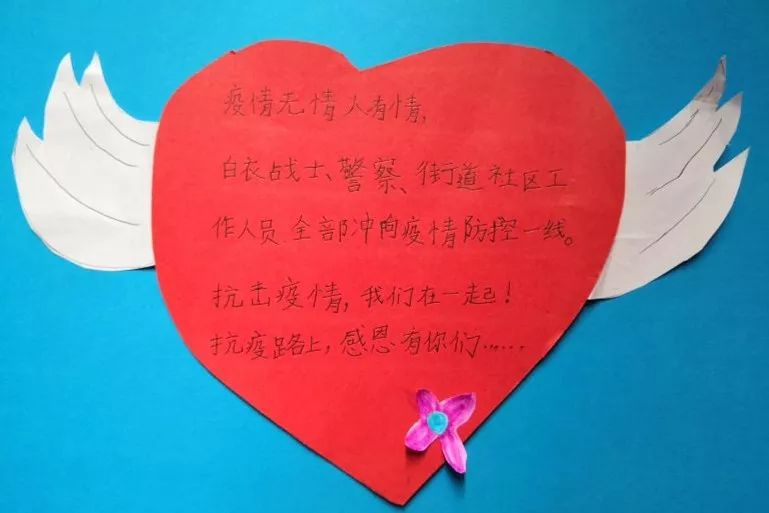 疫情无情人有情,
白衣战士、警察、街道社区工
作人员 全部冲向疫情防控一线。
抗击疫情,我们在一起!
抗疫路上,感恩有你们……